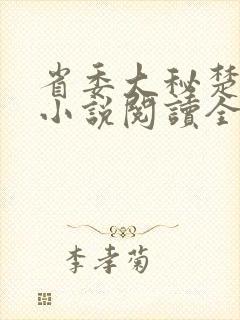 省委大秘楚
小說閱讀全
李孝菊